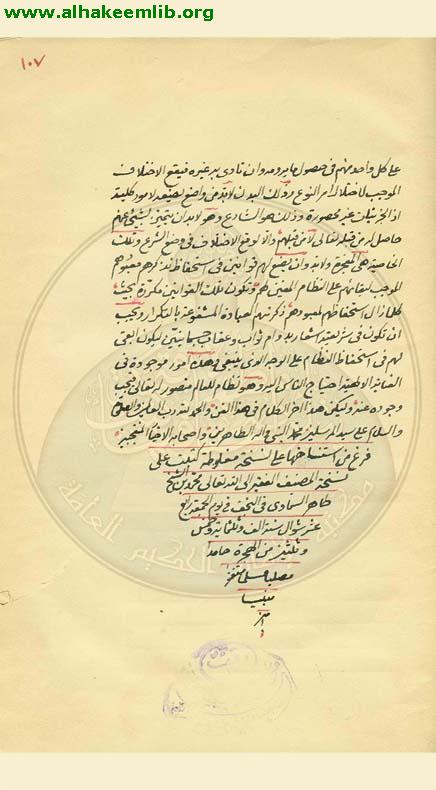 www.alhakeemlib.org
١٠٧
على كل واحد منهم في حصول ما يرومه وان تأدى بغيره فيقع الاختلاف
الموجب لاختلال امر النوع وذلك البدن لابد من واضع يضعه لامور كلية
اذ الجزئيات غير محصورة وذلك هو الشارع وهو لابد ان يتميز بشيء عنهم
حاصل له من قبله تعالى لا من قبلهم والا لوقع الاختلاف في وضع الشرع وتلك
الخاصية هي المعجزة ولابد وان يضع لهم قوانين في استحفاظ تذكرهم معبودهم
الموجب لبقائهم على النظام المعين لهم وتكون تلك القوانين مكررة بحيث
كلما زال استحفاظهم لمعبودهم ذكرتهم كالعبادة المشفوعة بالتكرار ويجب
ان تكون في سنن ثواب وعقاب جسمانيين ليكون
لهم في استحفاظ النظام على الوجه الذي ينبغي وهذه امور موجودة في
العناية الالهية احتاج الناس اليه وهو نظام للعالم متصور له تعالى فيجب
وجوده عنه وليكن هذا اخر الكلام في هذا الفن والحمد لله رب العالمين والصلوة
والسلام على سيد المرسلين محمد النبي واله الطاهرين واصحابه الاخيار المنتجبين
فرغ من استنساخها على نسخة مغلوطة كتبت على
نسخة المصنف الفقير الى الله تعالى محمد بن الشيخ
طاهر السماوي في النجف في يوم الجمعة
عشر شوال سنة الف وثلثماية وخمس
وثلثين من الهجرة حامدا
مصليا مسلما